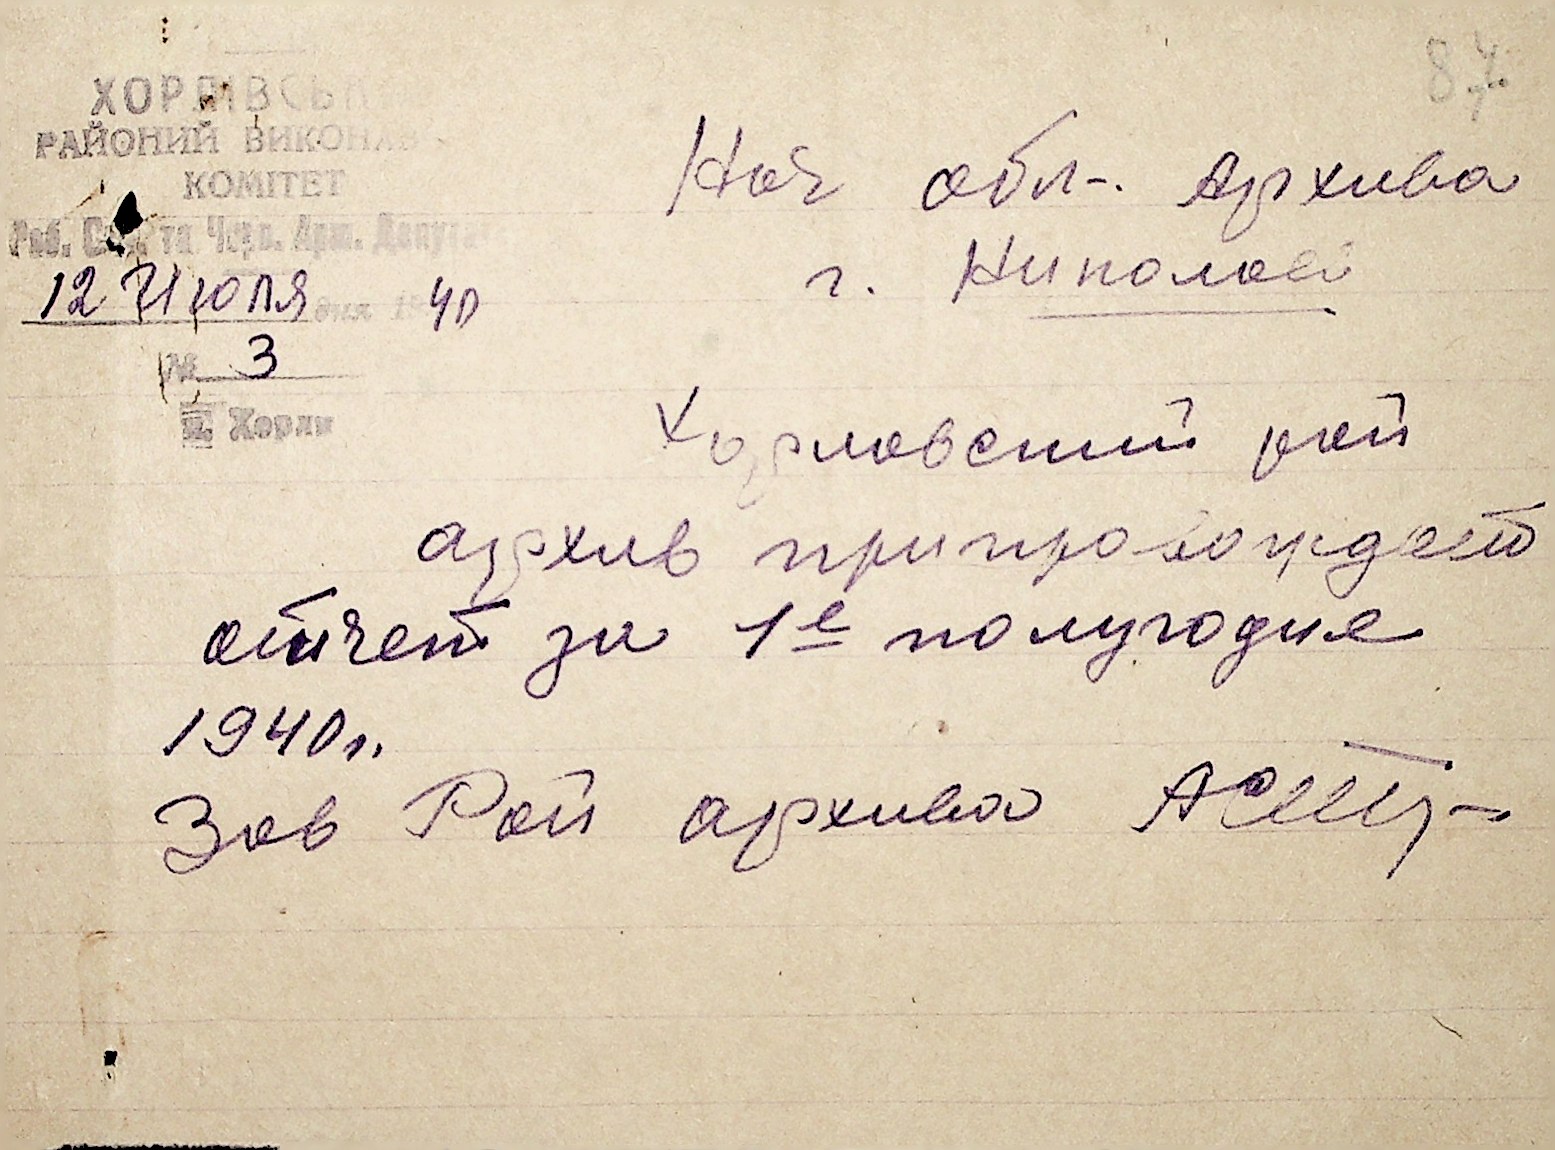 ХОРЛІВСЬК
РАЙОНИЙ ВИКОНАВ
КОМІТЕТ
Роб. Сел. та Черв. Арм. Депута
12 Июля дня 19 40
№ 3
Хорли
Нач обл-. Архива
г. Николаев
Хорловский рай
архив припрвождает
отчет за 1е полугодие
1940г.
Зав Рай архива